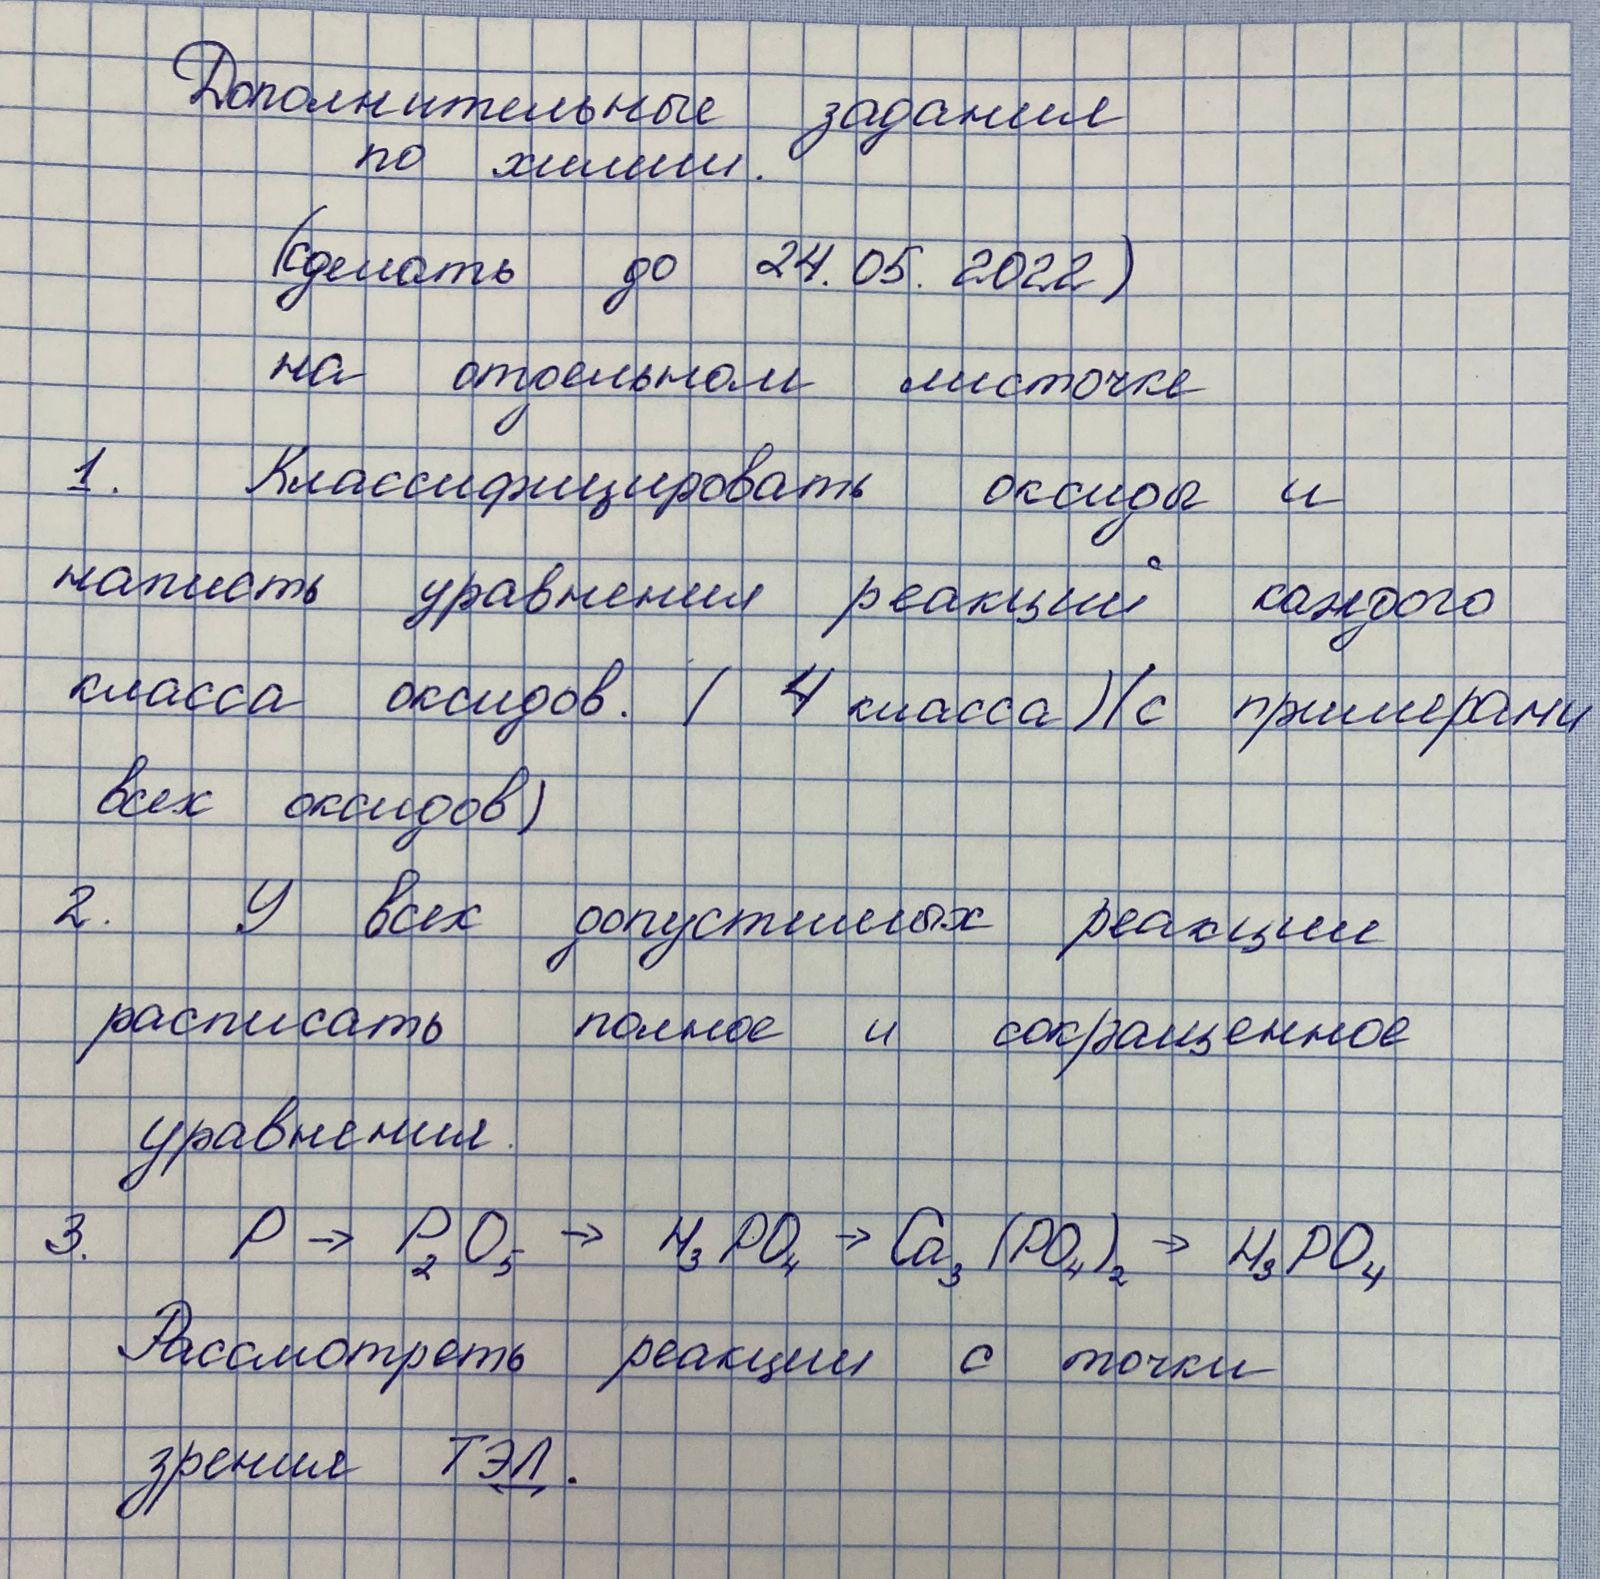 Дополнительные задания
по химии.
(сделать до 24.05.2022)
на отдельном листочке
1. Классифицировать оксиды и
написть уравнения реакций каждого
класса оксидов. (4 класса)(с примерами
всех оксидов)
2. У всех допустимых реакции
расписать полное и сокращенное
уравнения.
3. P → P₂O₅ → H₃PO₄ → Ca₃(PO₄)₂ → H₃PO₄
Рассмотреть реакции с точки
зрения ТЭД.